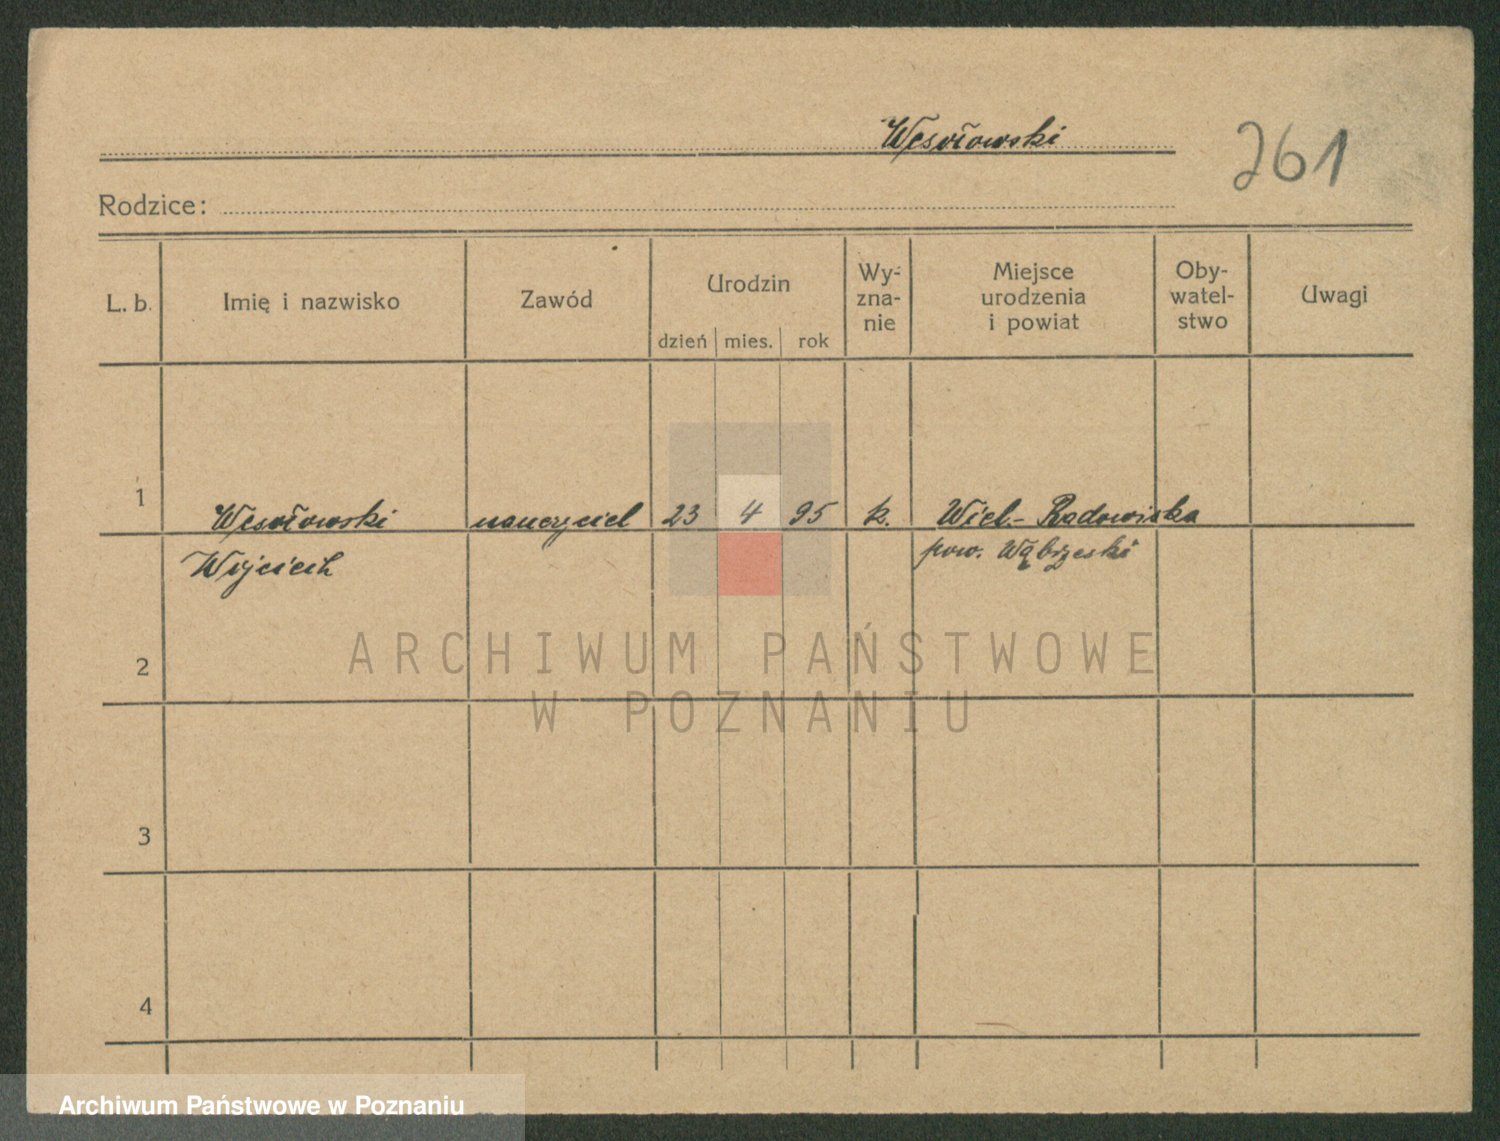 Wesołowski
261
Rodzice:
L. b.
Imię i nazwisko
Zawód
Urodzin
dzień mies. rok
Wy-
zna-
nie
Miejsce
urodzenia
i powiat
Oby-
watel-
stwo
Uwagi
1 Wesołowski nauczyciel 23 4 95 k. Wiel.- Radowiska
Wojciech pow. Wąbrzeski
2
3
4
ARCHIWUM PAŃSTWOWE
W POZNANIU
Archiwum Państwowe w Poznaniu